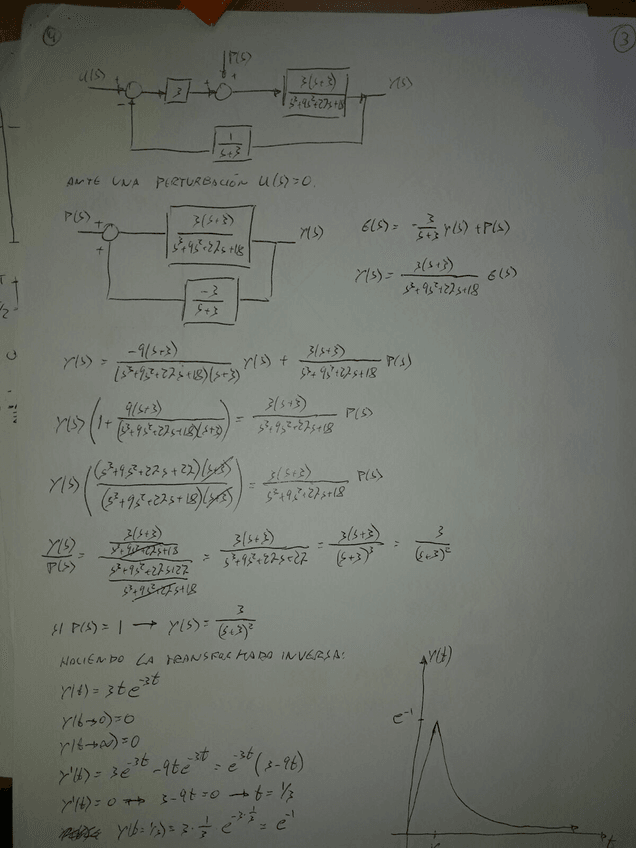 4
3
P(s)
U(s) + - 3 + + 3(s+3)/(s³+9s²+27s+18) Y(s)
1/(s+3)
ANTE UNA PERTURBACIÓN U(s)=0.
P(s) + + 3(s+3)/(s³+9s²+27s+18) Y(s)
-3/(s+3)
E(s) = -3/(s+3) Y(s) + P(s)
Y(s) = 3(s+3)/(s³+9s²+27s+18) E(s)
Y(s) = -9(s+3)/((s³+9s²+27s+18)(s+3)) Y(s) + 3(s+3)/(s³+9s²+27s+18) P(s)
Y(s) (1 + 9(s+3)/((s³+9s²+27s+18)(s+3))) = 3(s+3)/(s³+9s²+27s+18) P(s)
Y(s) ((s³+9s²+27s+27)(s+3)/((s³+9s²+27s+18)(s+3))) = 3(s+3)/(s³+9s²+27s+18) P(s)
Y(s)/P(s) = (3(s+3)/(s³+9s²+27s+18))/((s³+9s²+27s+27)/(s³+9s²+27s+18)) = 3(s+3)/(s³+9s²+27s+27) = 3(s+3)/(s+3)³ = 3/(s+3)²
SI P(s) = 1 → Y(s) = 3/(s+3)²
HACIENDO LA TRANSFORMADA INVERSA:
Y(t) = 3te^-3t
Y(t→0) = 0
Y(t→∞) = 0
Y'(t) = 3e^-3t - 9te^-3t = e^-3t (3-9t)
Y'(t) = 0 → 3-9t = 0 → t = 1/3
Y(t=1/3) = 3·1/3 e^-3·1/3 = e^-1
Y(t)
e^-1
t